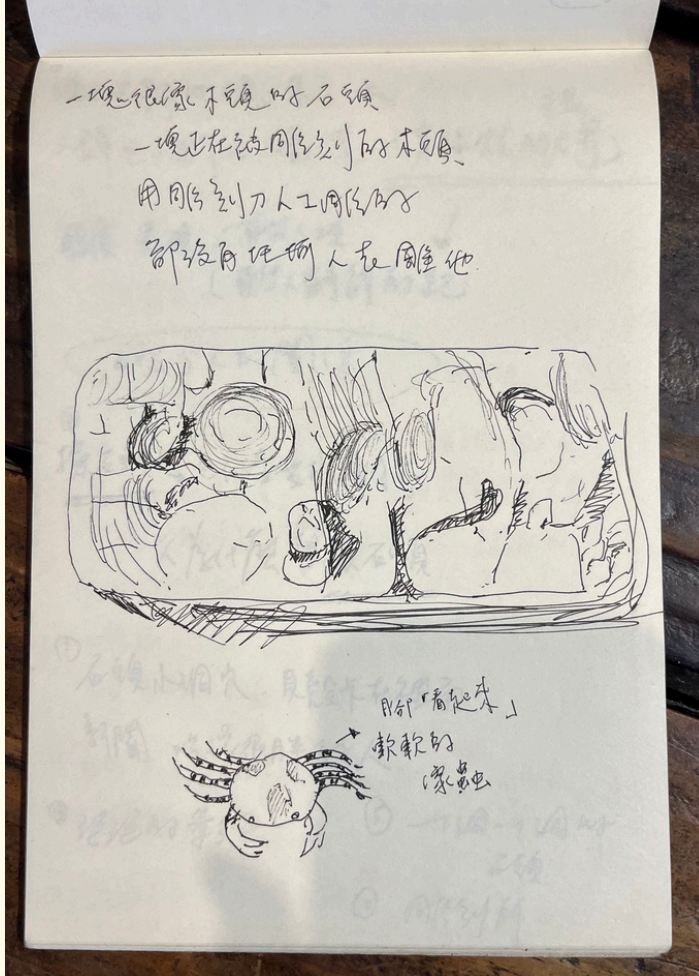 一塊很像木頭的石頭
一塊正在被雕刻的木頭
用雕刻刀人工雕的
都沒有任何人去雕他
腳「看起來」
軟軟的
像蟲